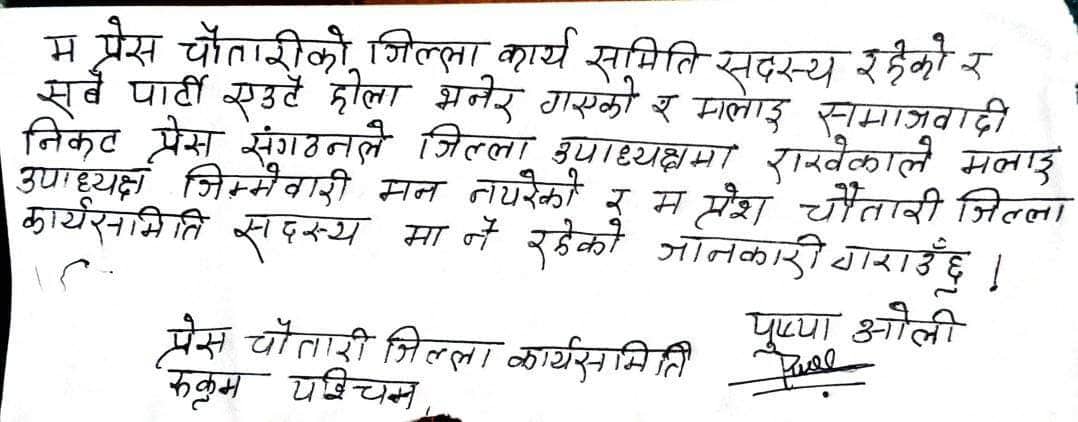 म प्रेस चौतारीको जिल्ला कार्य समिति सदस्य रहेको र
सबै पार्टी एउटै होला भनेर गएको र मलाइ समाजवादी
निकट प्रेस संगठनले जिल्ला उपाध्यक्षमा राखेकाले मलाइ
उपाध्यक्ष जिम्मेवारी मन नपरेको र म प्रेश चौतारी जिल्ला
कार्यसमिति सदस्य मा नै रहेको जानकारी गराउँछु।
प्रेस चौतारी जिल्ला कार्यसमिति
रुकुम पश्चिम
पुष्पा ओली